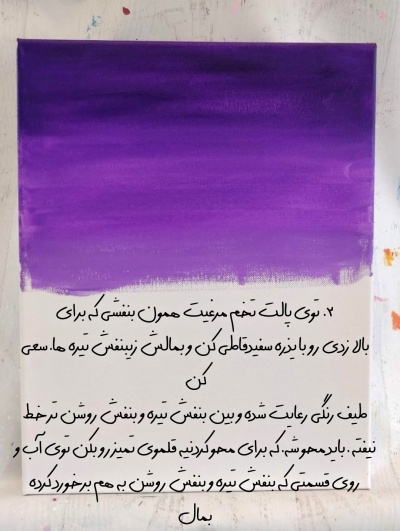 ۲. توی پالت تخم مرغیت همون بنفشی که برای
بالا زدی رو با یذره سفید قاطی کن و بمالش زیر بنفش تیره ها. سعی
کن
طیف رنگی رعایت شده و بین بنفش تیره و بنفش روشن تر خط
نیفته. باید محو شه. که برای محو کردنیه قلموی تمیز رو بکن توی آب و
روی قسمتی که بنفش تیره و بنفش روشن به هم برخورد کرده
بمال